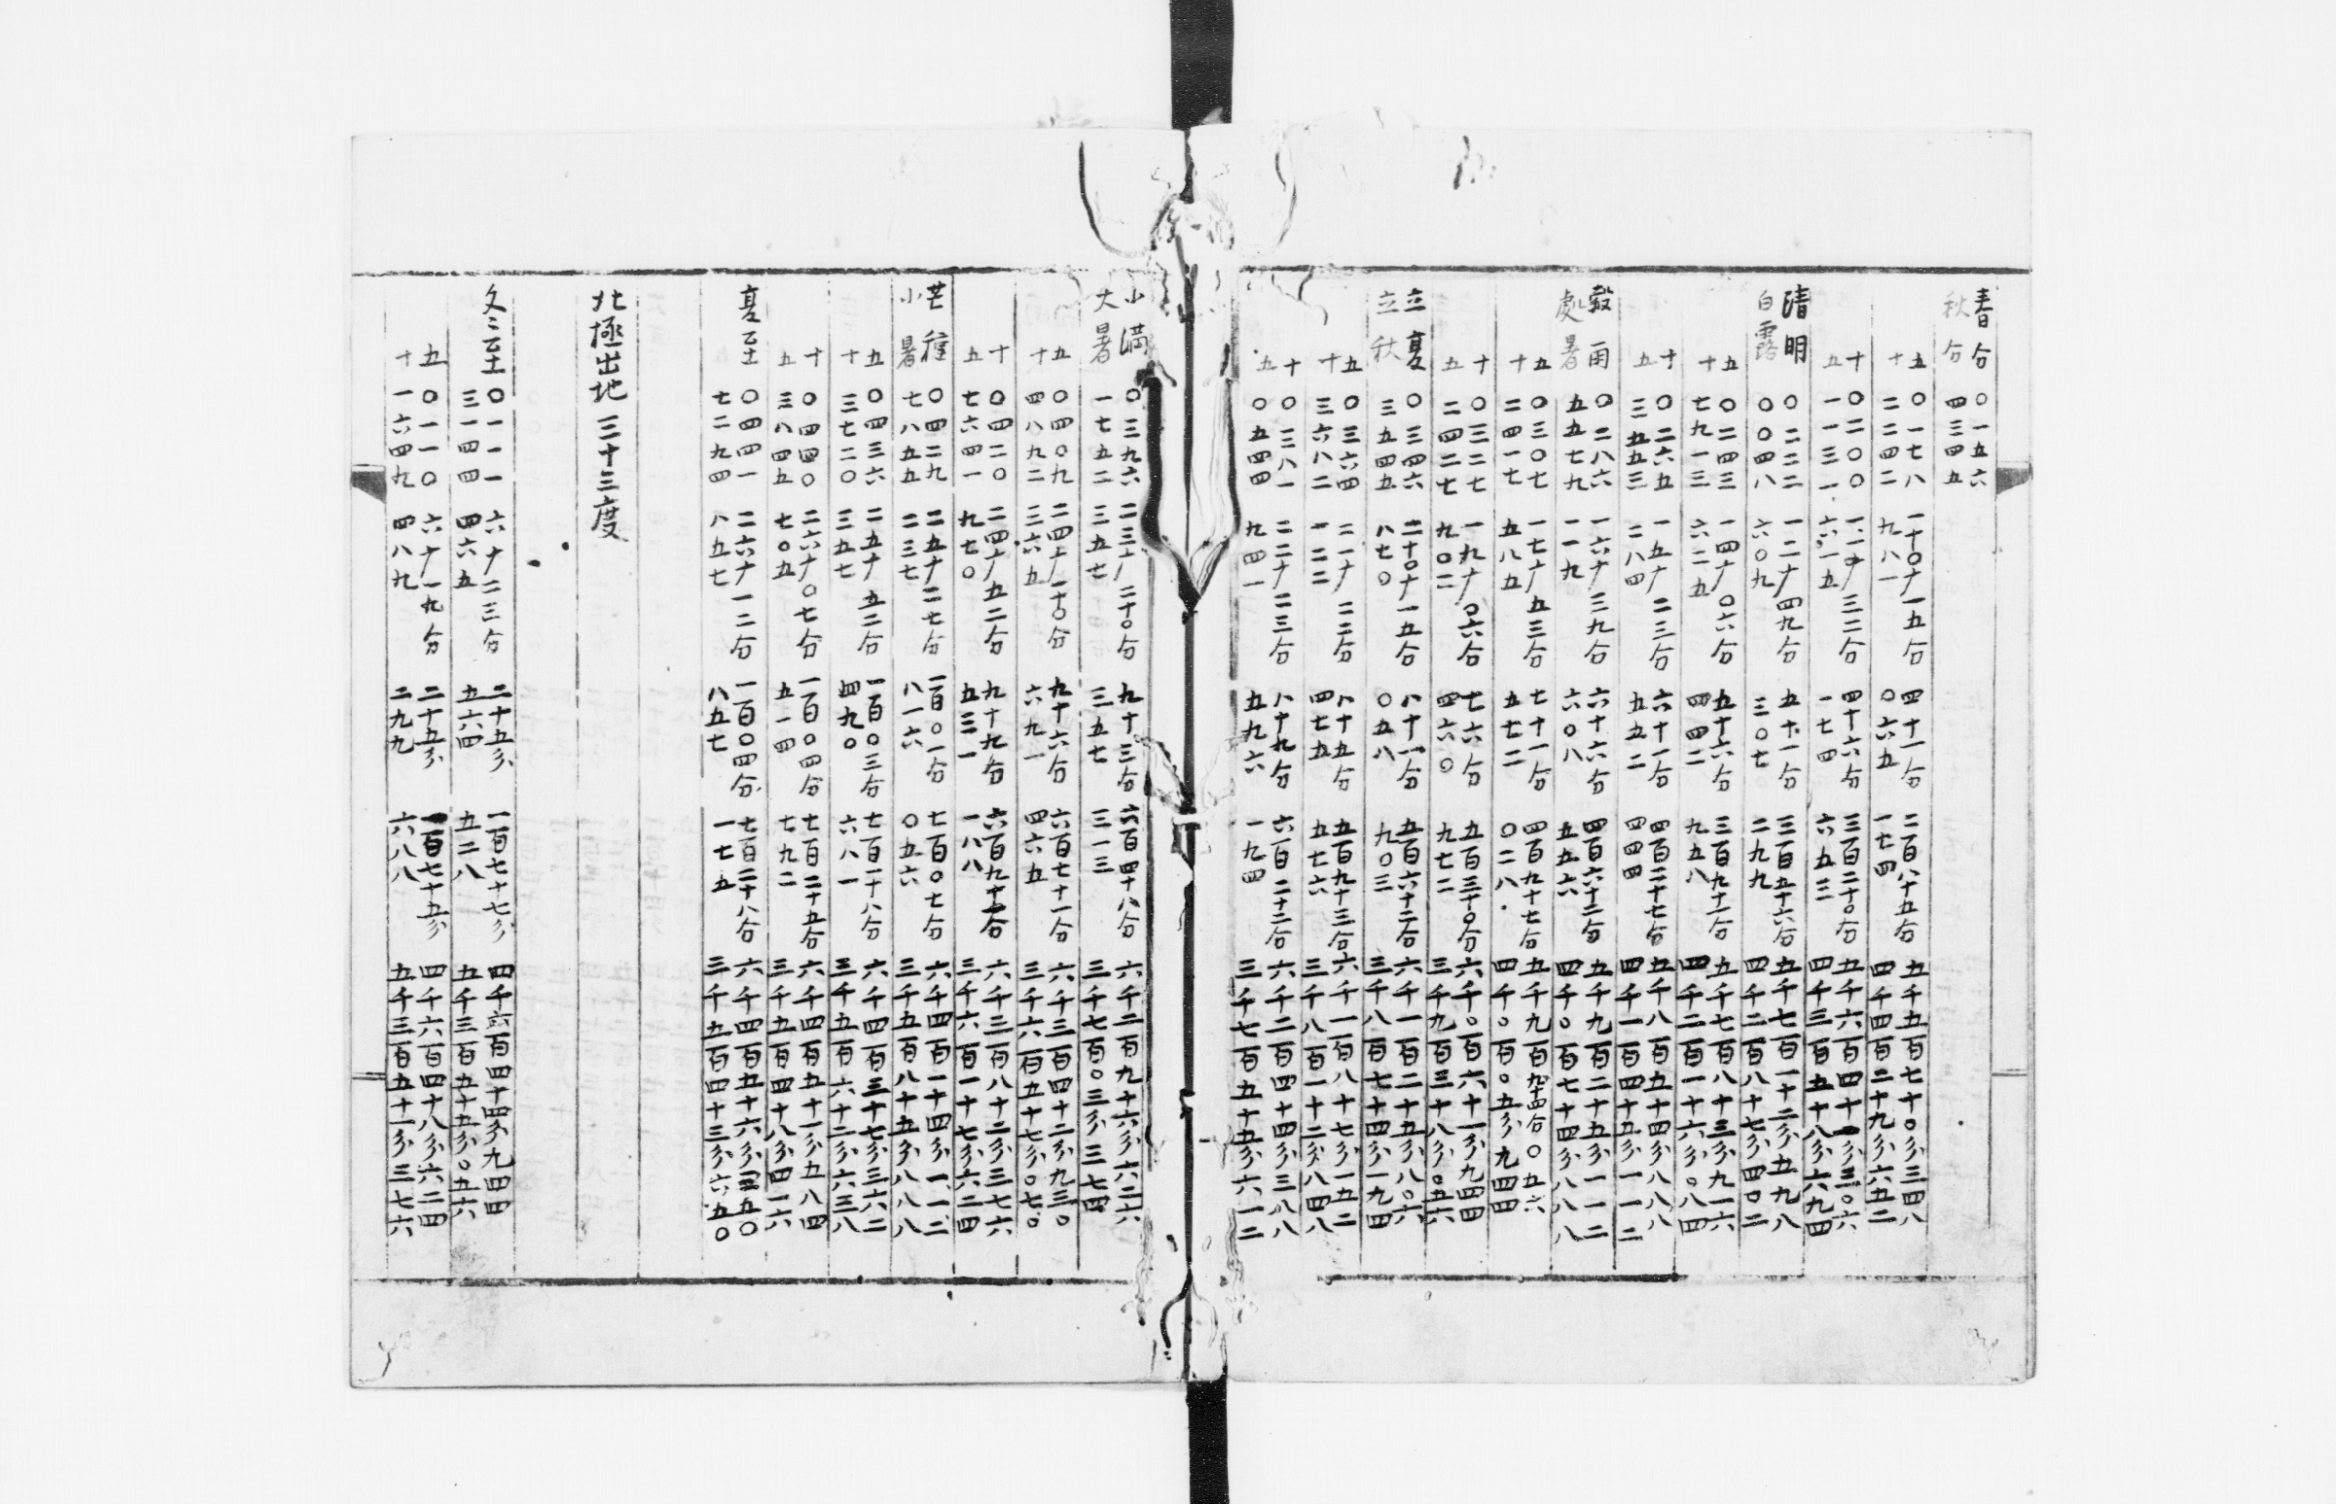 春分 〇一五六
秋分 四三四五
五 〇一七八 一十〇广一五分 四十一分 二百八十五分 五千五百七十〇分三四八
十 二二四二 九八一 〇六五 一七四 四千四百二十九分六五二
十 〇二〇〇 一一广三二分 四十六分 三百二十〇分 五千六百四十一分三〇六
五 一一三一 六一五 一七四 六五三 四千三百五十八分六九四
清明 〇二二二 一二广四九分 五十一分 三百五十六分 五千七百一十二分五九八
白露 〇〇四八 六〇九 三〇七 二九九 四千二百八十七分四〇二
五 〇二四三 一四广〇六分 五十六分 三百九十一分 五千七百八十三分九一六
十 七九一三 六二五 四四二 九五八 四千二百一十六分〇八四
十 〇二六五 一五广二三分 六十一分 四百二十七分 五千八百五十四分八八八
五 三五五三 二八四 五五二 四四四 四千一百四十五分一一二
穀雨 〇二八六 一六广三九分 六十六分 四百六十二分 五千九百二十五分一一二
處暑 五五七九 一一九 六〇八 五五六 四千〇百七十四分八八八
五 〇三〇七 一七广五三分 七十一分 四百九十七分 五千九百九十四分〇五六
十 二四一七 五八五 五七二 〇二八 四千〇百〇五分九四四
十 〇三二七 一九广〇六分 七六分 五百三十〇分 六千〇百六十一分九四四
五 二四二七 九〇二 四六〇 九七二 三千九百三十八分〇五六
立夏 〇三四六 二十〇广一五分 八十一分 五百六十二分 六千一百二十五分八〇六
立秋 三五四五 八七〇 〇五八 九〇三 三千八百七十四分一九四
五 〇三六四 二一广二二分 八十五分 五百九十三分 六千一百八十七分一五二
十 三六八二 一二二 四七五 五七六 三千八百一十二分八四八
十 〇三八一 二二广二三分 八十九分 六百二十二分 六千二百四十四分三八八
五 〇五四四 九四一 五九六 一九四 三千七百五十五分六一二
小滿 〇三九六 二三广二十〇分 九十三分 六百四十八分 六千二百九十六分六二六
大暑 一七五二 三五七 三五七 三一三 三千七百〇三分三七四
五 〇四〇九 二四广一十〇分 九十六分 六百七十一分 六千三百四十二分九三〇
十 四八九二 三六五 六九一 四六五 三千六百五十七分〇七〇
十 〇四二〇 二四广五二分 九十九分 六百九十一分 六千三百八十二分三七六
五 七六四一 九七〇 五三一 一八八 三千六百一十七分六二四
芒種 〇四二九 二五广二七分 一百〇一分 七百〇七分 六千四百一十四分一一二
小暑 七八五五 二三七 八一六 〇五六 三千五百八十五分八八八
五 〇四三六 二五广五二分 一百〇三分 七百一十八分 六千四百三十七分三六二
十 三七二〇 三五七 四九〇 六八一 三千五百六十二分六三八
十 〇四四〇 二六广〇七分 一百〇四分 七百二十五分 六千四百五十一分五八四
五 三八四五 七〇五 五一四 七九二 三千五百四十八分四一六
夏至 〇四四一 二六广一二分 一百〇四分 七百二十八分 六千四百五十六分三五〇
七二九四 八五七 八五七 一七五 三千五百四十三分六五〇
北極出地三十三度
冬至 〇一一一 六广二三分 二十五分 一百七十七分 四千六百四十四分九四四
三一四四 四六五 五六四 五二八 五千三百五十五分〇五六
五 〇一一〇 六广一九分 二十五分 一百七十五分 四千六百四十八分六二四
十 一六四九 四八九 二九九 六八八 五千三百五十一分三七六